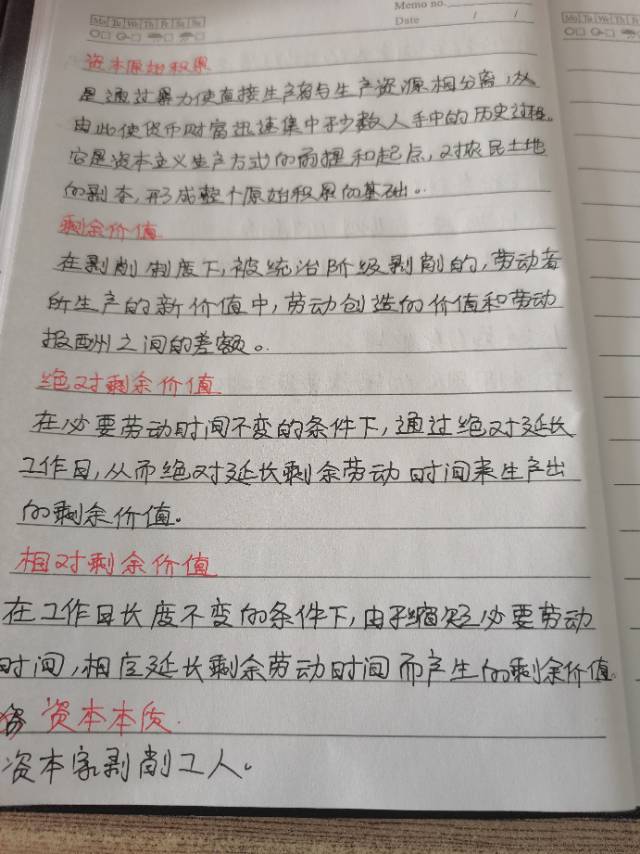 Memo no.
Mo Tu We Th Fr Sa Su
Date / /
Mo Tu We Th Fr Sa Su
资本原始积累
是通过暴力使直接生产者与生产资源相分离,从
由此使货币财富迅速集中于少数人手中的历史过程。
它是资本主义生产方式的前提和起点,对农民土地
的剥夺,形成整个原始积累的基础。
剩余价值
在剥削制度下,被统治阶级剥削的,劳动者
所生产的新价值中,劳动创造的价值和劳动
报酬之间的差额。
绝对剩余价值
在必要劳动时间不变的条件下,通过绝对延长
工作日,从而绝对延长剩余劳动时间来生产出
的剩余价值。
相对剩余价值
在工作日长度不变的条件下,由于缩短必要劳动
时间,相应延长剩余劳动时间而产生的剩余价值。
资本本质.
资本家剥削工人。